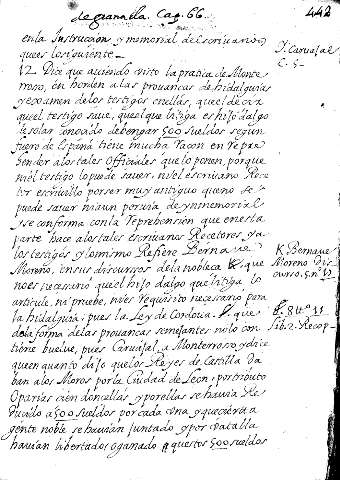 de granada. Cap. 66. 442
en la Instruccion y memorial del escriuano,
que es lo siguiente _
12. Dice que auiendo visto la pratica de Monte-
rroso, en horden a las prouancas de hidalguias
y examen de los testigos en ellas, que el decir
que el testigo saue, que el que litiga es hijo dalgo
de solar conocido de bengar 500 sueldos segun
fuero de España tiene mucha racon en repre
hender a los tales officiales que lo ponen, porque
ni el testigo lo puede sauer, ni el escriuano
escriuillo por ser muy antiguo que no se
puede sauer ni aun por via de ynmemorial
y se conforma con la reprehension que en esta
parte hace a los tales escriuanos Recetores y a
los testigos y lo mismo Refiere Berna ue
Moreno, en sus discursos de la nobleca que
no es necesario que el hijo dalgo que litiga lo
articule, ni prueue, ni es requisito necesario para
la hidalguia, pues la Ley de Cordoua. que
de la forma de las prouancas semejantes no lo con
tiene buelue, pues Caruajal a Monterroso y dice
que en quanto dijo que los Reyes de Castilla da
ban a los Moros por la Ciudad de Leon, por tributo
O parias cien doncellas, y por ellas se hauia Re
ducido a 500 sueldos por cada una y que cierta
gente noble se hauian juntado y por batalla
hauian libertado, o ganado aquestos 500 sueldos
J. Caruajal
C. 5 -
Bernaue
Moreno Dis
curso. 5. nº 11
lib. 2. Recop